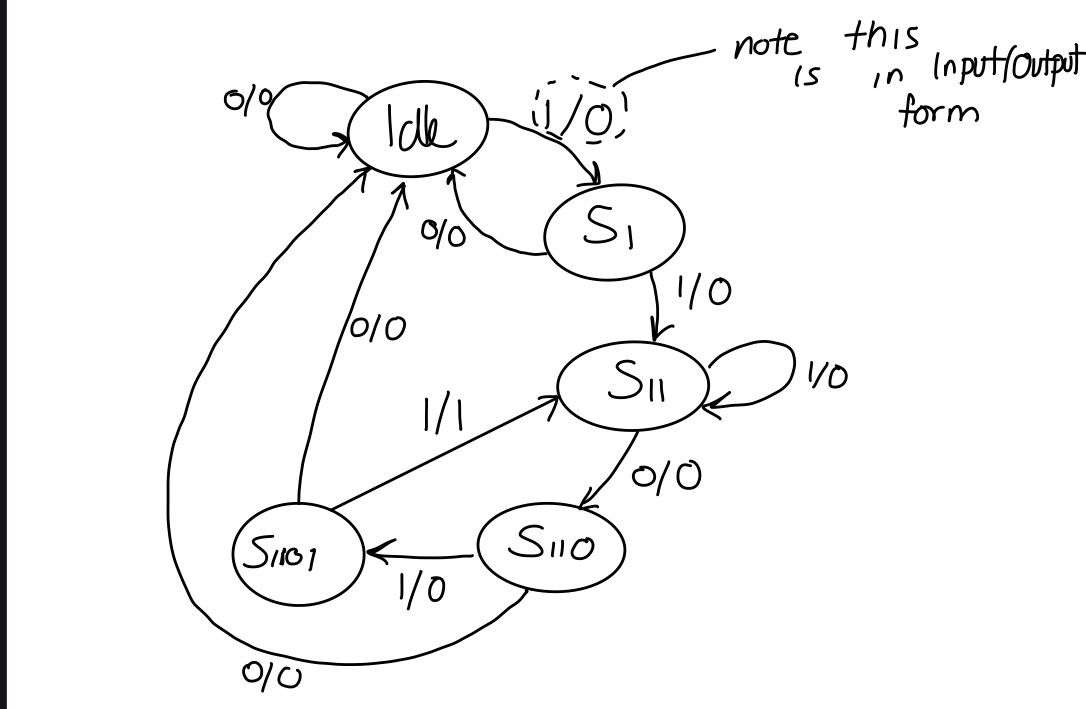 note this
is in Input/Output
form
0/0
Idle
1/0
S1
0/0
1/0
S11
1/0
0/0
1/1
0/0
S1101
S110
1/0
0/0